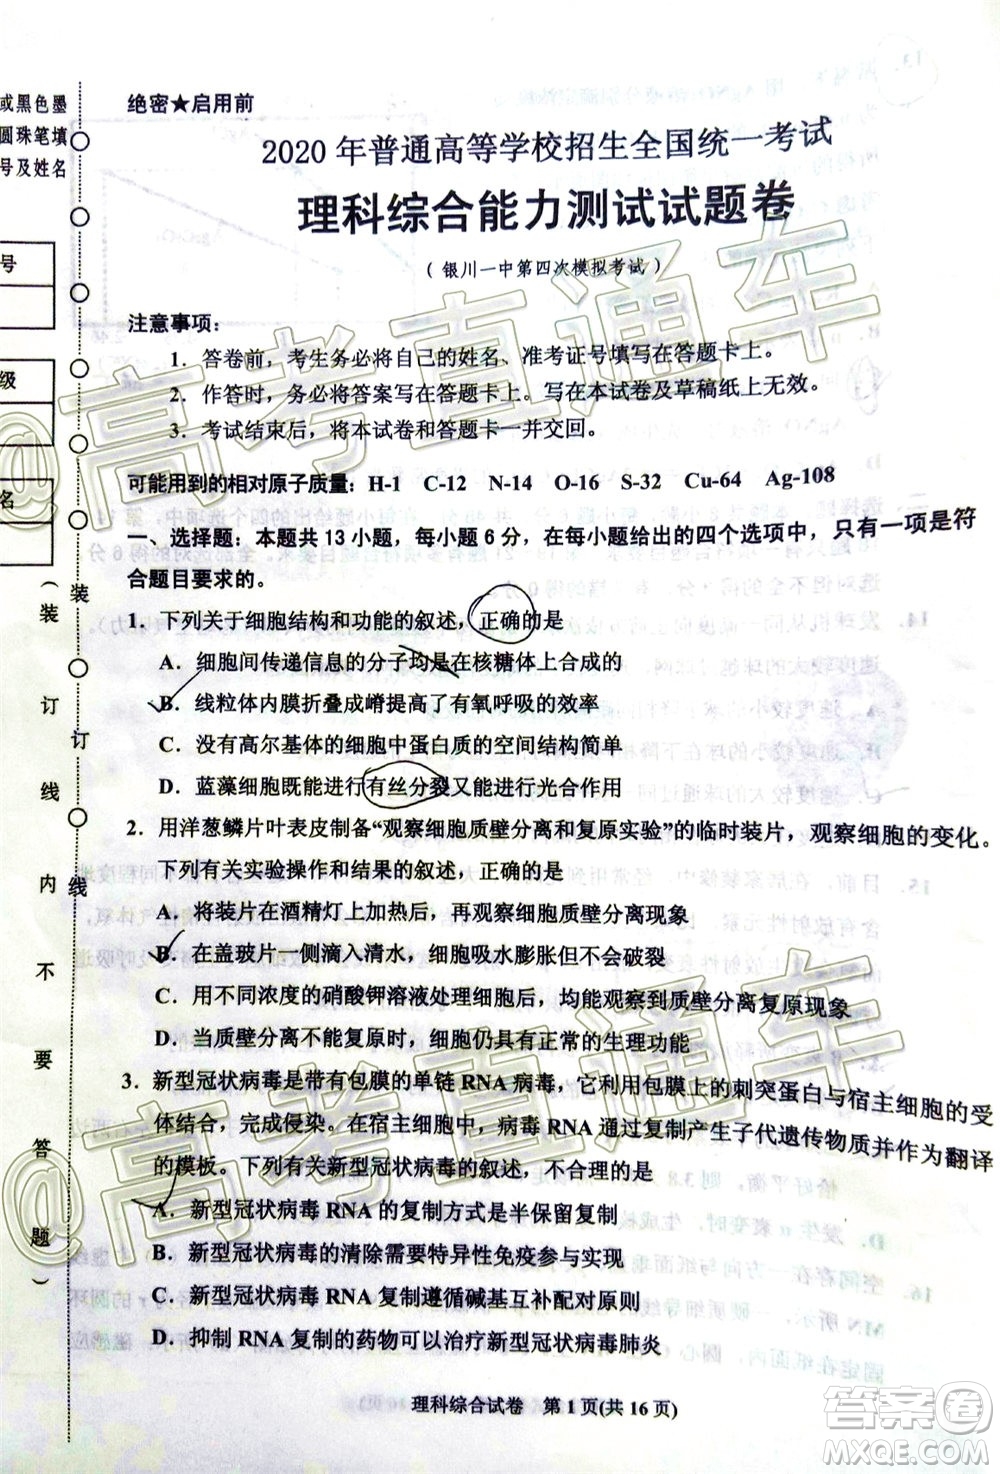 或黑色墨
圆珠笔填
号及姓名
号
级
名
（装订线内不要答题）
装
订
线
绝密★启用前
2020年普通高等学校招生全国统一考试
理科综合能力测试试题卷
（银川一中第四次模拟考试）
注意事项：
1．答卷前，考生务必将自己的姓名、准考证号填写在答题卡上。
2．作答时，务必将答案写在答题卡上。写在本试卷及草稿纸上无效。
3．考试结束后，将本试卷和答题卡一并交回。
可能用到的相对原子质量：H-1 C-12 N-14 O-16 S-32 Cu-64 Ag-108
一、选择题：本题共13小题，每小题6分，在每小题给出的四个选项中，只有一项是符
合题目要求的。
1．下列关于细胞结构和功能的叙述，正确的是
A．细胞间传递信息的分子均是在核糖体上合成的
B．线粒体内膜折叠成嵴提高了有氧呼吸的效率
C．没有高尔基体的细胞中蛋白质的空间结构简单
D．蓝藻细胞既能进行有丝分裂又能进行光合作用
2．用洋葱鳞片叶表皮制备“观察细胞质壁分离和复原实验”的临时装片，观察细胞的变化。
下列有关实验操作和结果的叙述，正确的是
A．将装片在酒精灯上加热后，再观察细胞质壁分离现象
B．在盖玻片一侧滴入清水，细胞吸水膨胀但不会破裂
C．用不同浓度的硝酸钾溶液处理细胞后，均能观察到质壁分离复原现象
D．当质壁分离不能复原时，细胞仍具有正常的生理功能
3．新型冠状病毒是带有包膜的单链RNA病毒，它利用包膜上的刺突蛋白与宿主细胞的受
体结合，完成侵染。在宿主细胞中，病毒RNA通过复制产生子代遗传物质并作为翻译
的模板。下列有关新型冠状病毒的叙述，不合理的是
A．新型冠状病毒RNA的复制方式是半保留复制
B．新型冠状病毒的清除需要特异性免疫参与实现
C．新型冠状病毒RNA复制遵循碱基互补配对原则
D．抑制RNA复制的药物可以治疗新型冠状病毒肺炎
理科综合试卷 第1页(共16页)
@高考直通车
@高考直通车
答案圈
MXQE.COM